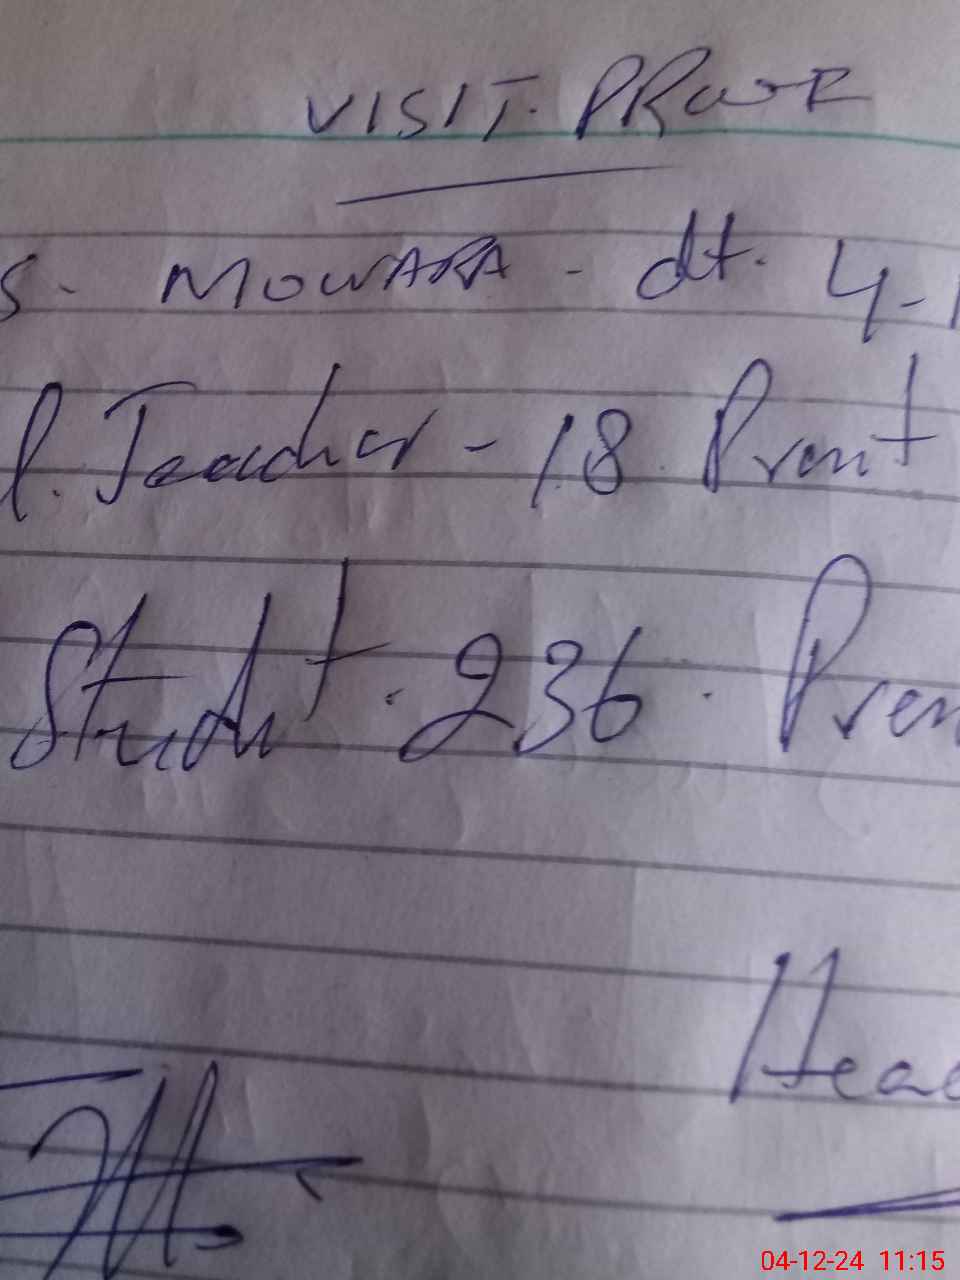 VISIT. PROOF
S. MOWARA - dt. 4-1
l. Teacher - 18 Prent
Studnt . 236 . Pren
Head
04-12-24 11:15